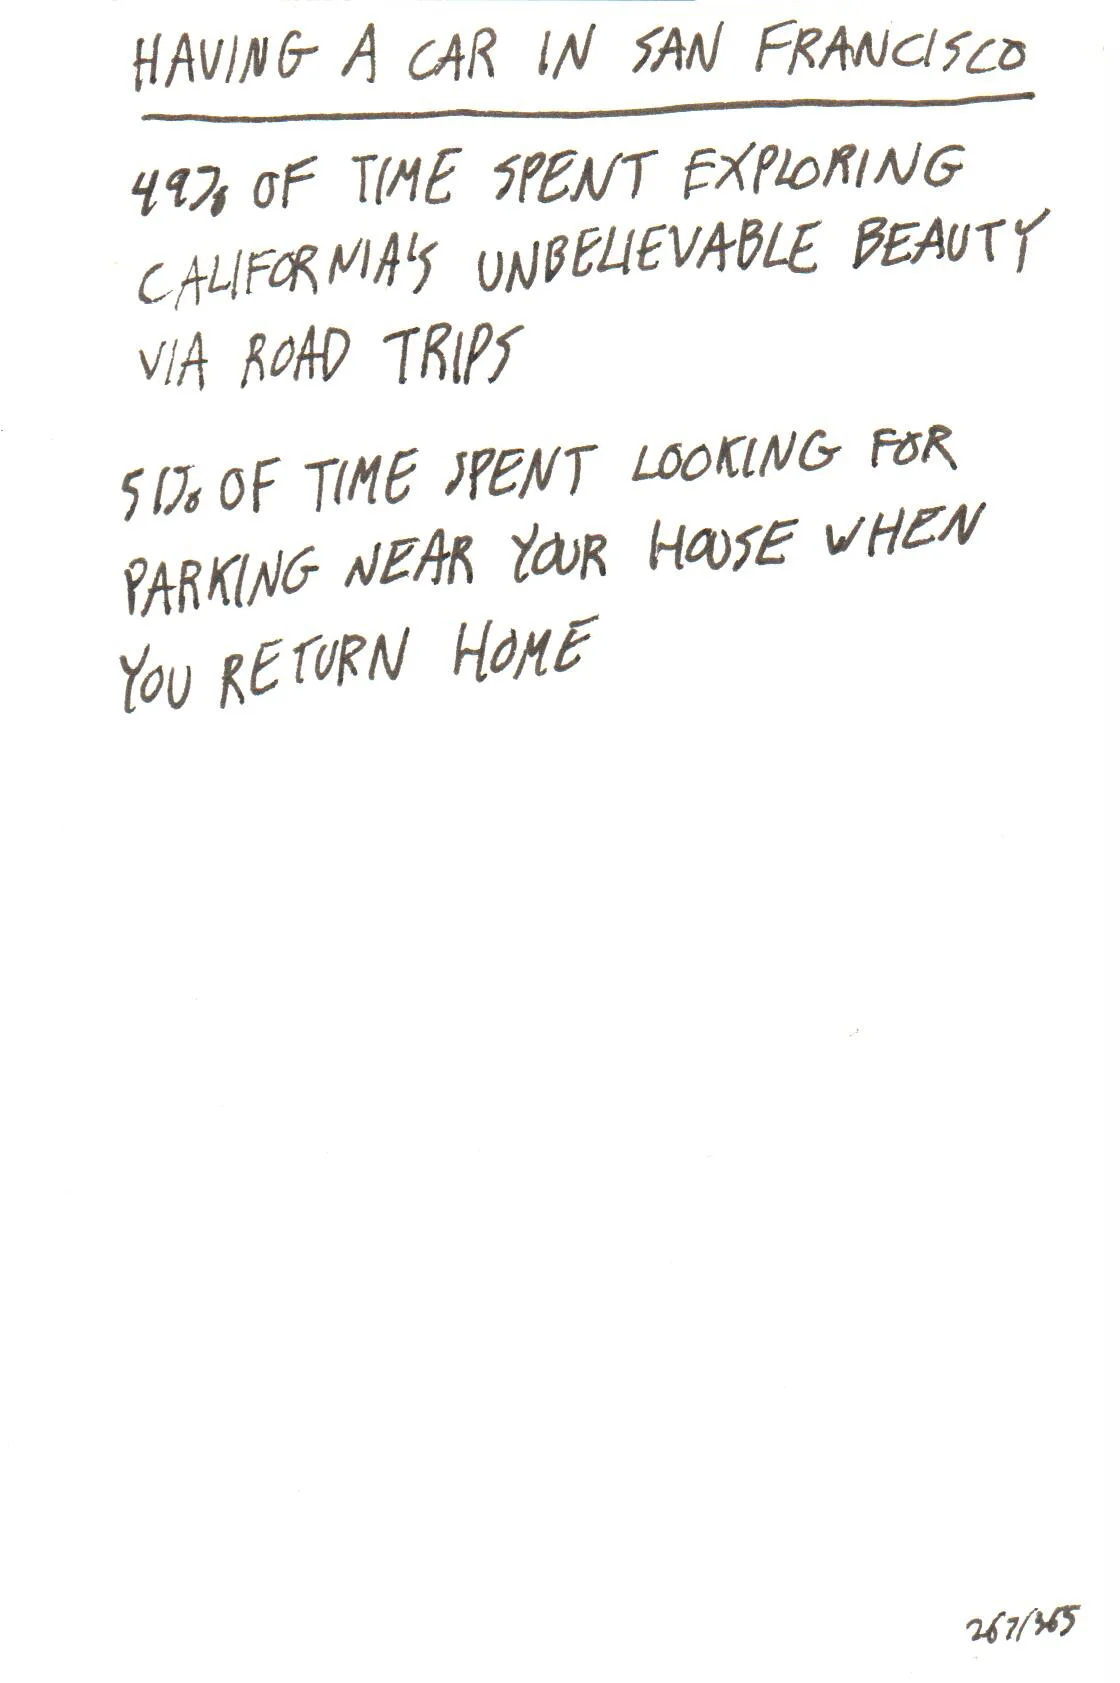 HAVING A CAR IN SAN FRANCISCO
49% OF TIME SPENT EXPLORING
CALIFORNIA'S UNBELIEVABLE BEAUTY
VIA ROAD TRIPS
51% OF TIME SPENT LOOKING FOR
PARKING NEAR YOUR HOUSE WHEN
YOU RETURN HOME
267/365